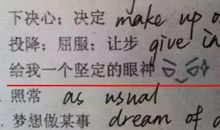 下决心；决定 make up o
投降；屈服；让步 give in
给我一个坚定的眼神
照常 as usual
梦想做某事 dream of